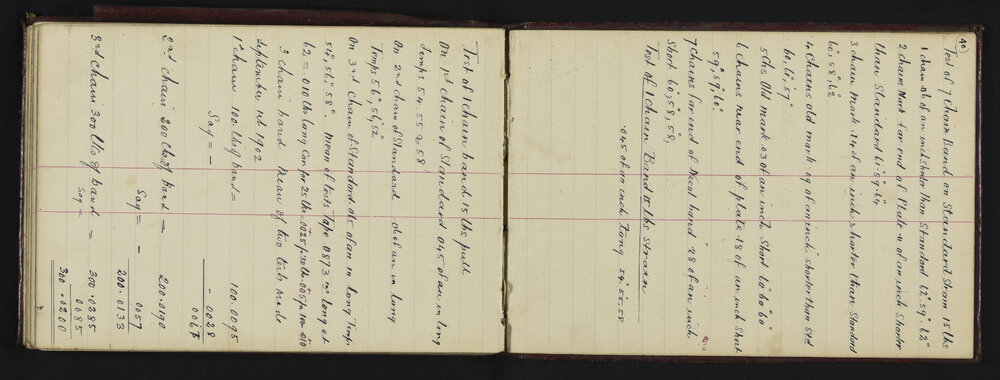 (40)
Test of 7 Chain Band on Standard Strain 15 lbs
1 chain .06 of an inch shorter than Standard 62°.59°.62°
2 chains Mark far end of Plate .11 of an inch Shorter
than Standard 61°.59°.64
3 chain Mark .14 of an inch shorter than Standard
60°,58°,62
4 Chains old mark 09 of an inch shorter than Std
60°,61°,57°
5 chs Old mark .03 of an inch Short 60°60°60°
6 Chains near end of plate .18 of an inch Short
59°,59°,60°.
7 Chains far end of band .28 of an inch
Short 60°,58°,58°,
Test of 1 Chain Band 15 lbs Strain
.045 of an inch Long 54.55.58
Test of 1 chain band 15 lbs pull
On 1st chain of Standard 045 of an in long
Temps. 54 55 & 58
On 2nd chain of Standard of an in long
Temps 56°,56°,52°
On 3rd Chain of Standard .015 of an in long Temp.
54°,56°,58°. Mean of tests Tape 0.0873 in long at
62 = 010 lks long Corr for 25 lb .0025 p. 10 lb .005 p. 100
3 chain band Mean of two tests made
September 1st 1902
1st chain 100. lks of band = 100.0095
Say = - - 0028
0067
2nd chain 200 lks of Band = 200.0190
Say = - 0057
200.0133
3rd chain 300 lks of band = 300.0285
Say = 0085
300.0200